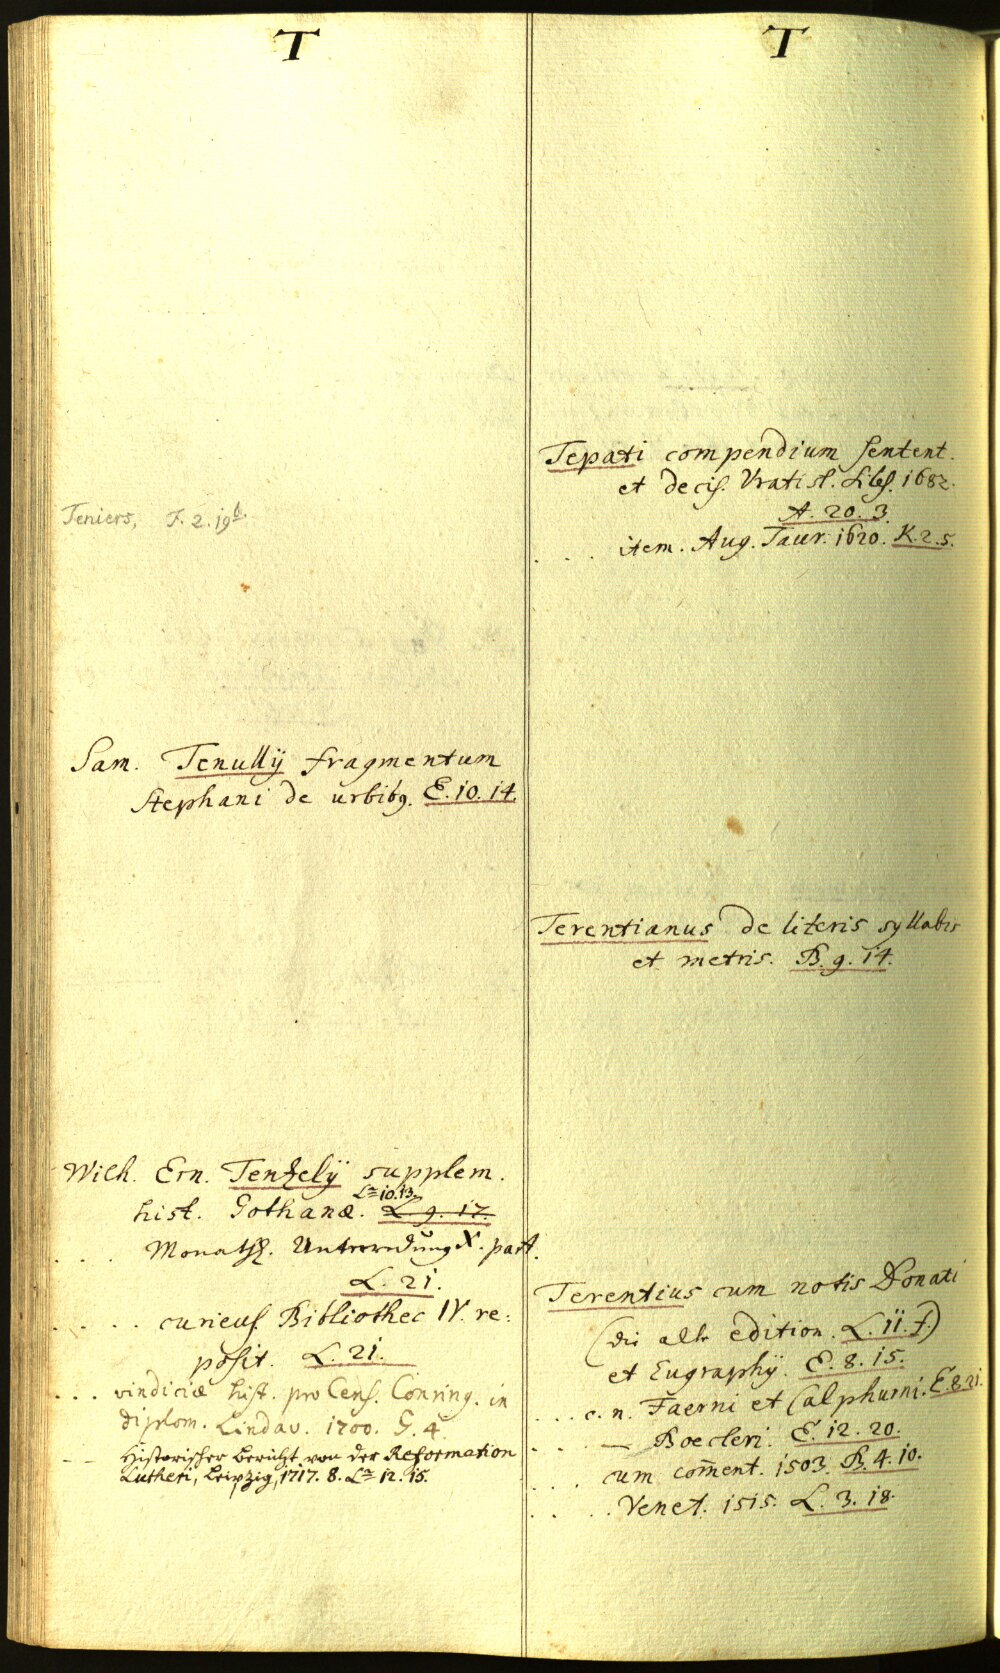 T
Teniers, F. 2. 19b.
Sam. Tenullÿ fragmentum
Stephani de urbib9. E. 10. 14.
Wilh. Ern. Tentzelÿ supplem.
La 10. 13.
hist. Gothanæ. L. 9. 17.
. . . . Monatl. Unterredung X. part.
L. 21.
. . . . . curieus. Bibliothec IV. re:
posit. L. 21.
. . . vindiciæ hist. pro Cens. Conring. in
diplom. Lindav. 1700. G. 4.
— — Historischer Bericht von der Reformation
Lutheri, Leipzig, 1717. 8. La 12. 15.
T
Tepati compendium sentent.
et decis. Vratisl. Siles. 1682.
A. 20. 3.
. . . item. Aug. Taur. 1620. K. 2. 5.
Terentianus de literis syllabis
et metris. B. 9. 14.
Terentius cum notis Donati
(die alte edition. L. 11. f.)
et Eugraphÿ. E. 8. 15.
. . . c. n. Faerni et Calphurni. E. 8. 21.
. . . — Boecleri. E. 12. 20.
. . . cum com̄ent. 1503. B. 4. 10.
. . . . Venet. 1515. L. 3. 18.